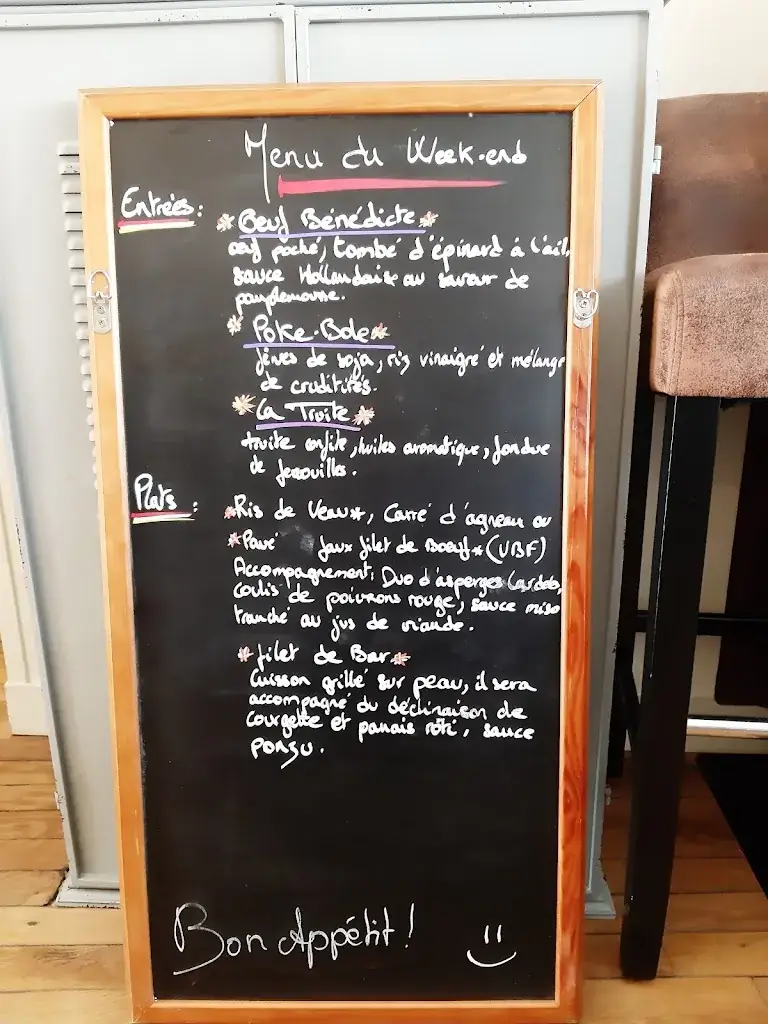 Menu du Week-end
Entrées:
*Oeuf Bénédicte*
œuf poché, tombé d'épinard à l'ail,
sauce Hollandaise au saveur de
pamplemousse.
*Poke-Bole*
fèves de soja, riz vinaigré et mélange
de crudités.
*La Truite*
truite confite, huiles aromatique, fondue
de fenouilles.
Plats:
*Ris de Veau*, Carré d'agneau ou
*Pavé faux filet de Boeuf*(VBF)
Accompagnement: Duo d'asperges
coulis de poivrons rouge, sauce miso
tranché au jus de viande.
*filet de Bar*
Cuisson grillé sur peau, il sera
accompagné du déclinaison de
courgette et panais rôti, sauce
ponzu.
Bon Appétit!